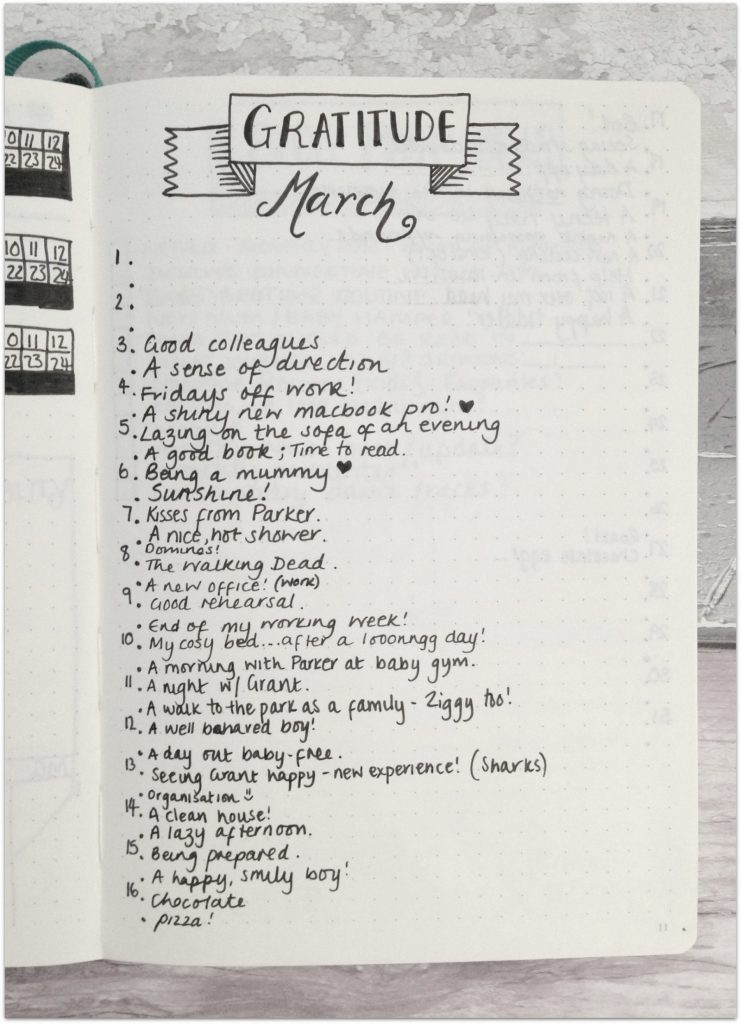 GRATITUDE
March
1.
2.
3. Good colleagues
• A sense of direction
4. Fridays off work!
• A shiny new macbook pro! ♥
5. Lazing on the sofa of an evening
• A good book; Time to read.
6. Being a mummy ♥
• Sunshine!
7. Kisses from Parker.
• A nice, hot shower.
8 Dominos!
• The Walking Dead.
9 • A new office! (work)
• Good rehearsal.
• End of my working week!
10. My cosy bed...after a looonngg day!
• A morning with Parker at baby gym.
11. A night w/ Grant.
• A walk to the park as a family - Ziggy too!
12. A well behaved boy!
13 • A day out baby-free.
• Seeing Grant happy - new experience! (Sharks)
14. • Organisation
• A clean house!
• A lazy afternoon.
15. Being prepared.
• A happy, smily boy!
16. Chocolate
• Pizza!
10 11 12
22 23 24
10 11 12
22 23 24
10 11 12
22 23 24
11